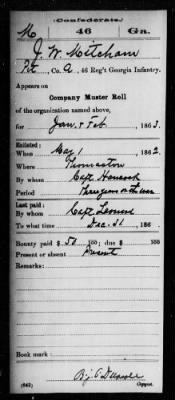 (Confederate.)
M 46 Ga.
J. W. Mitcham
Pvt, Co. A, 46 Reg't Georgia Infantry.
Appears on
Company Muster Roll
of the organization named above,
for Jan & Feb, 1863.
Enlisted:
When May 1, 1862.
Where Thomaston
By whom Capt.
Period Three years or the war
Last paid:
By whom Capt.
To what time Dec. 31, 186
Bounty paid $ 50 100; due $ 100
Present or absent Present
Remarks:
Book mark:
(642) Copyist.